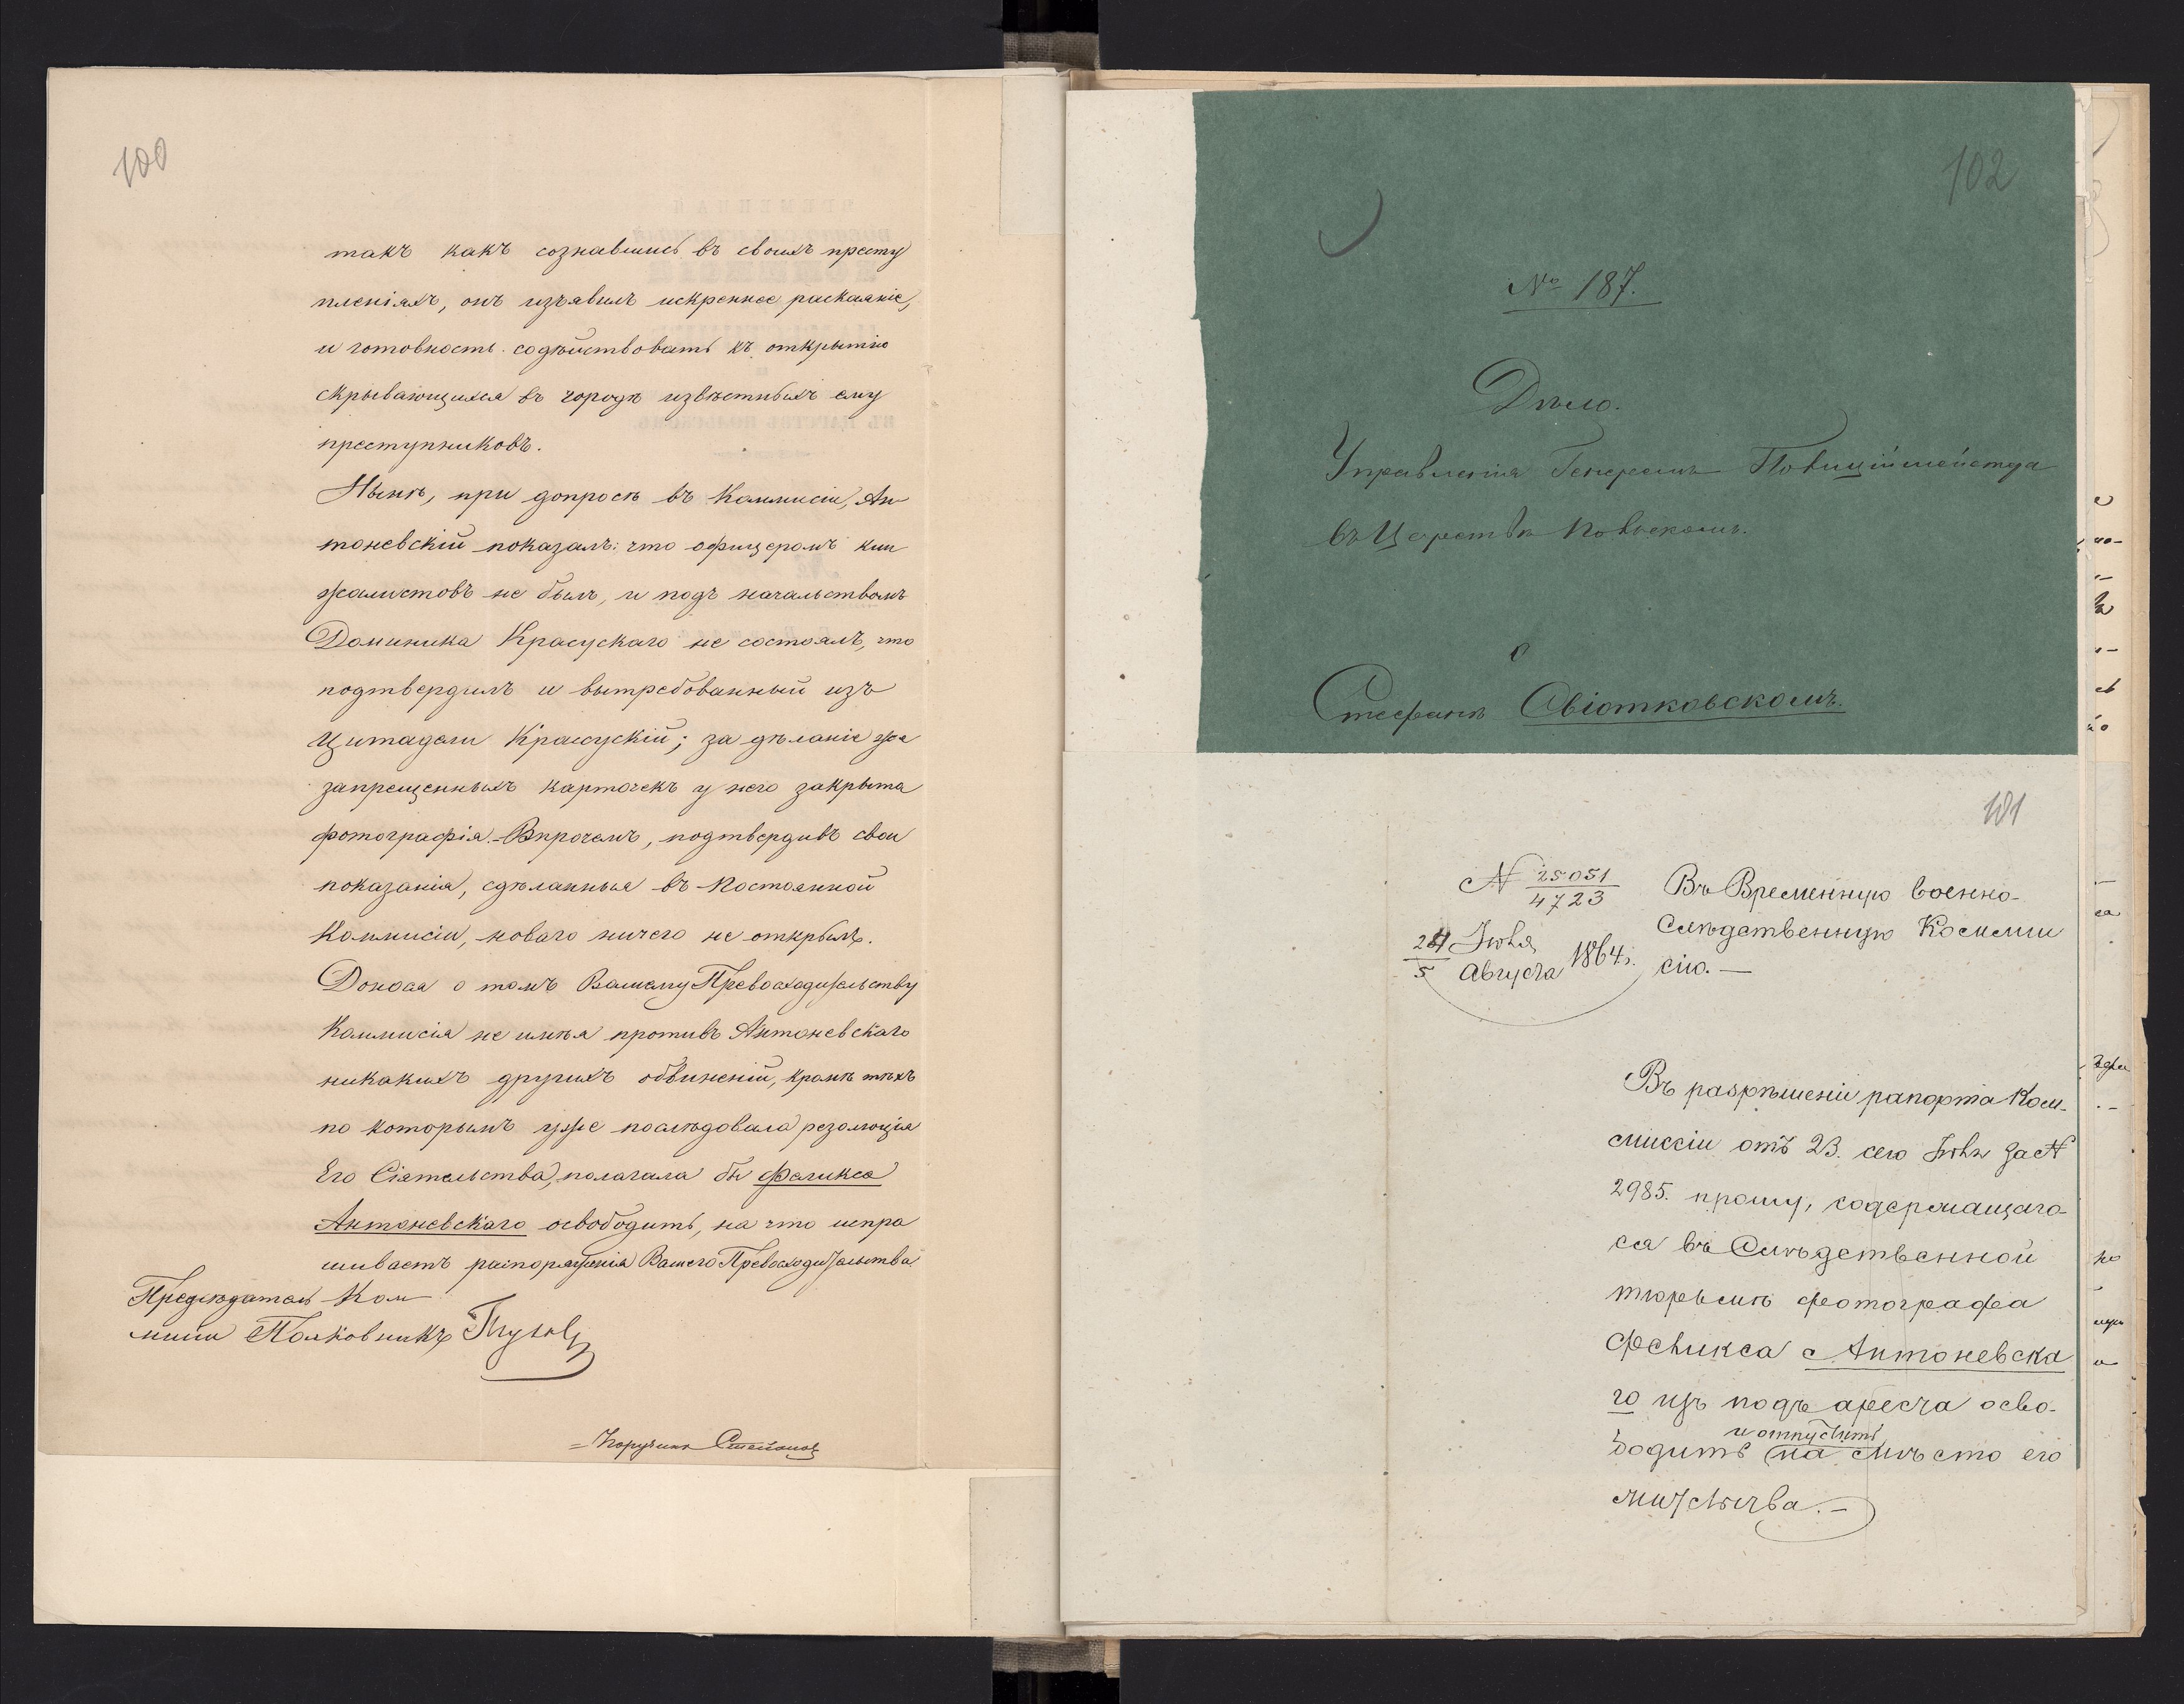 100
такъ какъ сознавшись въ своихъ престу
пленіяхъ, онъ изъявилъ искреннее раскаяніе,
и готовность содѣйствовать къ открытію
скрывающихся въ городѣ извѣстныхъ ему
преступниковъ.
Нынѣ, при допросѣ въ Коммисіи, Ан
тоневскій показалъ: что офицеромъ кин
жалистовъ не былъ, и подъ начальствомъ
Доминика Красускаго не состоялъ, что
подтвердилъ и вытребованный изъ
Цитадели Красускій; за дѣланіе же
запрещенныхъ карточекъ у него закрыта
фотографія.- Впрочемъ, подтвердивъ свои
показанія, сдѣланныя въ Постоянной
Коммисіи, новаго ничего не открылъ.
Донося о томъ Вашему Превосходительству
Коммисія не имѣя противъ Антоневскаго
никакихъ другихъ обвиненій, кромѣ тѣхъ
по которымъ уже послѣдовала резолюція
Его Сіятельства, полагала бы Феликса
Антоневскаго освободить, на что испра
шиваетъ распоряженія Вашего Превосходительства.
Предсѣдатель Ком
мисіи Полковникъ
Поручикъ Степановъ
102
№ 187.
Дѣло.
Управленія Генералъ Полиціймейстера
въ Царствѣ Польскомъ.
о
Стефанѣ Свіонтковскомъ.
101
N 25051
4723
24 Іюля
5 Августа 1864 г.
Въ Временную военно-
Слѣдственную Коммис
сію.—
Въ разрѣшеніи рапорта Ком-
миссіи отъ 23. сего Іюля за N
2985. прошу, содержащаго-
ся въ Слѣдственной
тюрьмѣ фотографа
Феликса Антоневска
го изъ подъ ареста осво-
и отпустить
бодить на мѣсто его
жительства.—